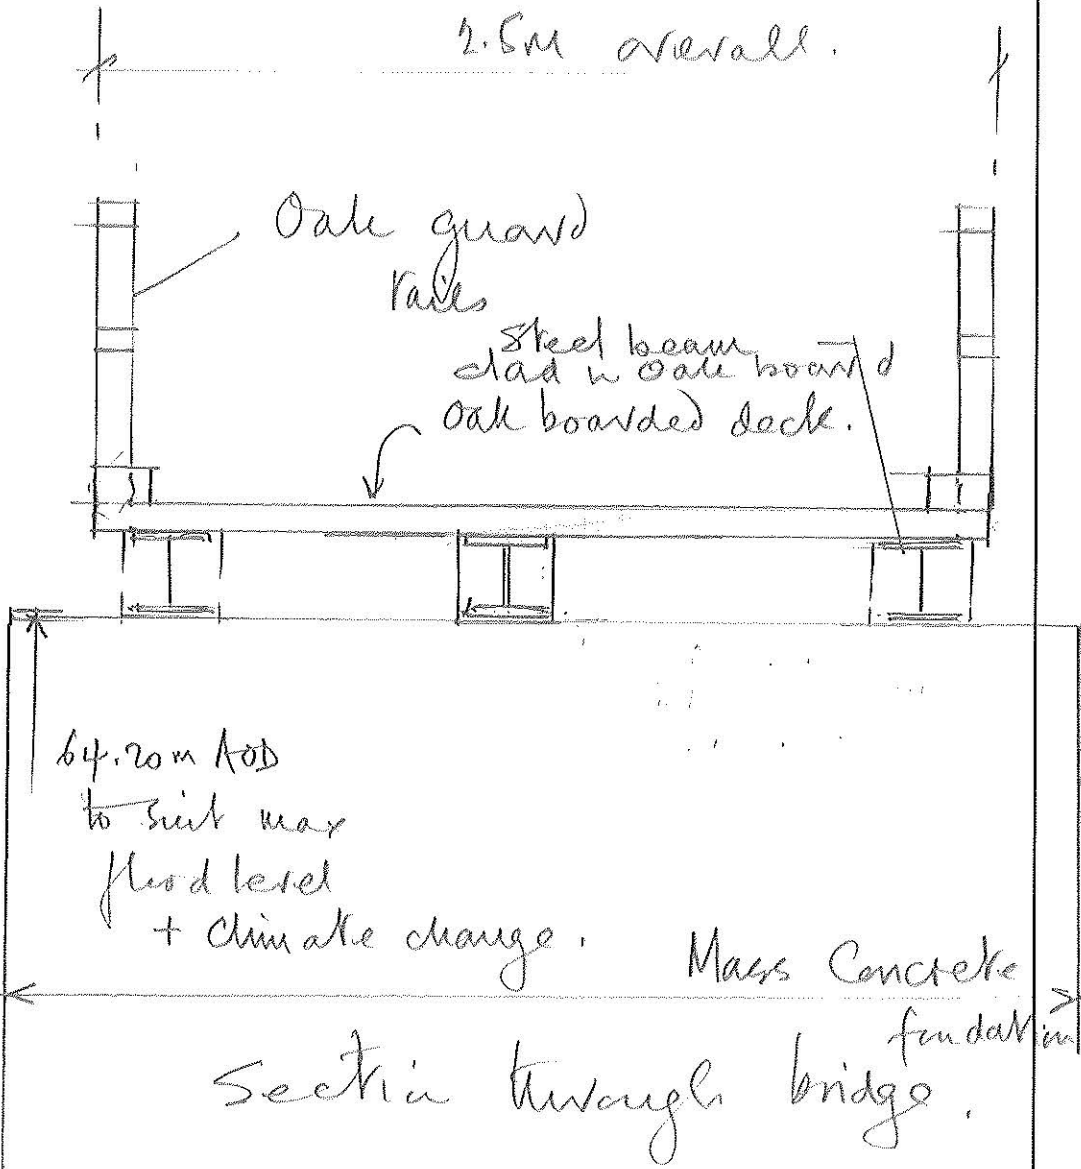 2.5m overall.
Oak guard
rails
Steel beam
clad in oak board
Oak boarded deck.
64.20m AOD
to suit max
flood level
+ climate change.
Mass Concrete
foundation
Section through bridge.